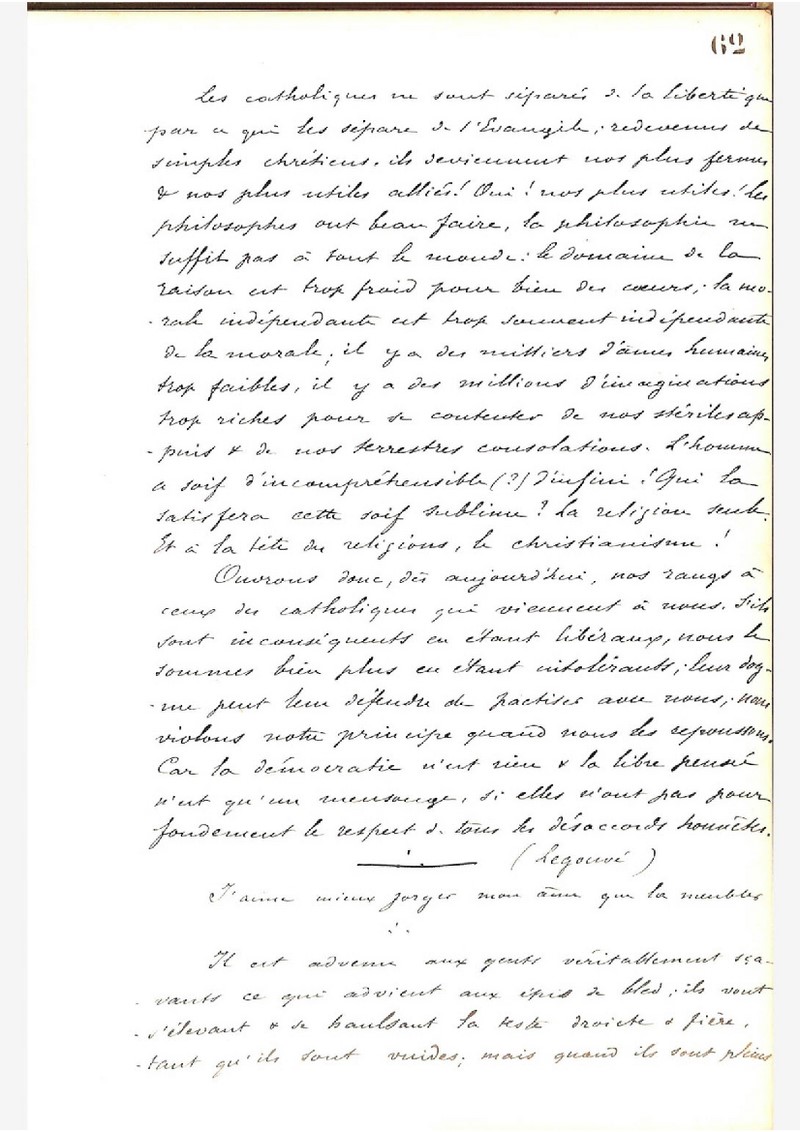 62
Les catholiques ne sont séparés de la liberté que
par ce qui les sépare de l'Evangile ; redevenus de
simples chrétiens, ils deviennent nos plus fermes
& nos plus utiles alliés ! Oui ! nos plus utiles ! Les
philosophes ont beau faire, la philosophie ne
suffit pas à tout le monde : le domaine de la
raison est trop froid pour bien des cœurs ; la mo-
-rale indépendante est trop souvent indépendante
de la morale ; il y a des milliers d'âmes humaines
trop faibles, il y a des millions d'imaginations
trop riches pour se contenter de nos stériles ap-
-puis & de nos terrestres consolations. L'homme
a soif d'incompréhensible (?) d'infini ! Qui la
satisfera cette soif sublime ? La religion seule.
Et à la tête des religions, le christianisme !
Ouvrons donc, dès aujourd'hui, nos rangs à
ceux des catholiques qui viennent à nous. S'ils
sont inconséquents en étant libéraux, nous le
sommes bien plus en étant intolérants ; leur dog-
-me peut leur défendre de pactiser avec nous ; nous
violons notre principe quand nous les repoussons.
Car la démocratie n'est rien & la libre pensée
n'est qu'un mensonge, si elles n'ont pas pour
fondement le respect de tous les désaccords honnêtes.
(Legouvé)
J'aime mieux forger mon âme que la meubler
Il est advenu aux gents véritablement sça-
-vants ce qui advient aux épis de bled ; ils vont
-s'élevant & se haulsant la teste droicte & fière,
-tant qu'ils sont vuides ; mais quand ils sont pleins